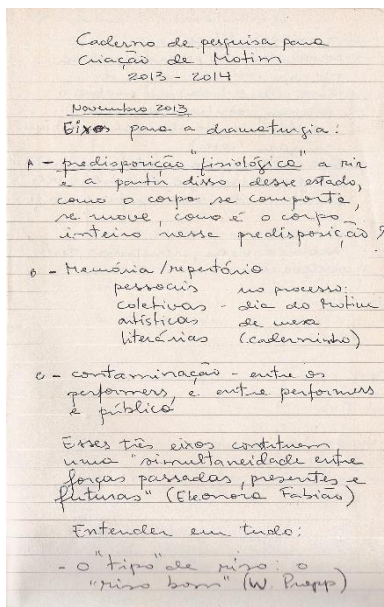 Caderno de pesquisa para
Criação de Motim
2013 - 2014
Novembro 2013
Eixos para a dramaturgia:
A - predisposição "fisiológica" a rir
e a partir disso, desse estado,
como o corpo se comporta,
se move, como é o corpo
inteiro nessa predisposição?
B - Memória/repertório
pessoais no processo:
coletivas - dia do Motim
artísticas de mesa
literárias (caderninho)
C - contaminação - entre os
performers, e entre performers
e público
Esses três eixos constituem
uma "simultaneidade entre
forças passadas, presentes e
futuras" (Eleonora Fabião)
Entender em tudo:
- o "tipo" de riso: o
"riso bom" (W. Propp)